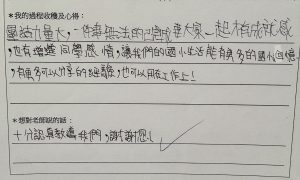 *我的過程收穫及心得：
團結力量大，一件事無法自己完成要大家一起才有成就感
，也有增進同學感情，讓我們的國小生活能有更多的國小回憶
，有更多可以分享的經驗，也可以用在工作上！
*想對老師說的話：
十分認真教導我們，謝謝您！